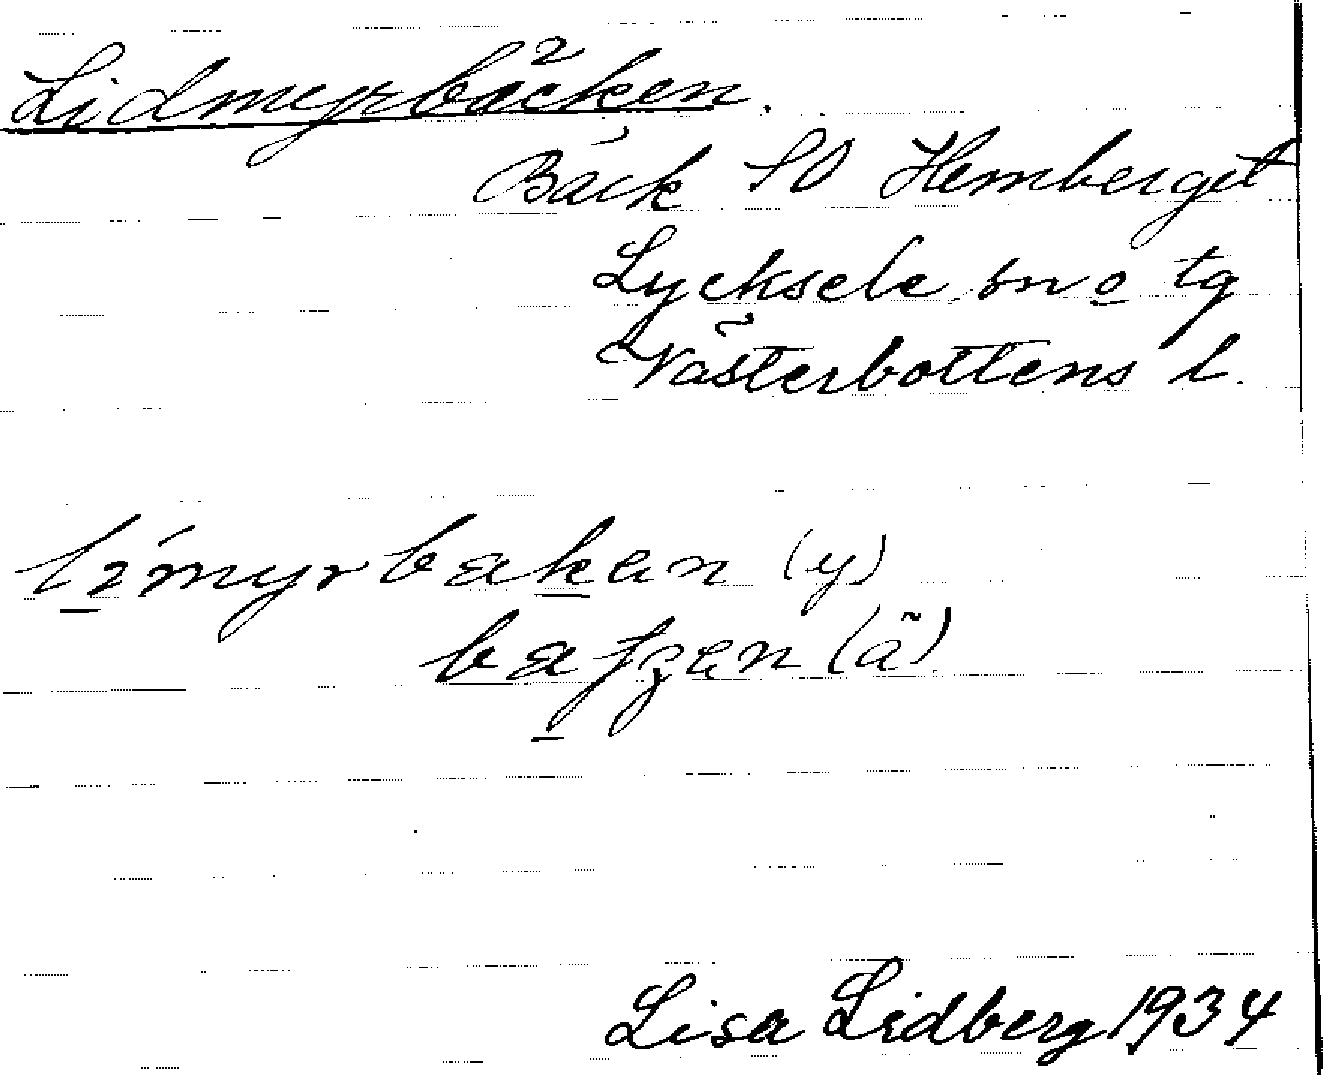 Lidmyrbäcken.
Bäck SO Hemberget
Lycksele sn o tg
Västerbottens l.
límyrbækan (y)
bæʃʒan (ä)
Lisa Lidberg 1934